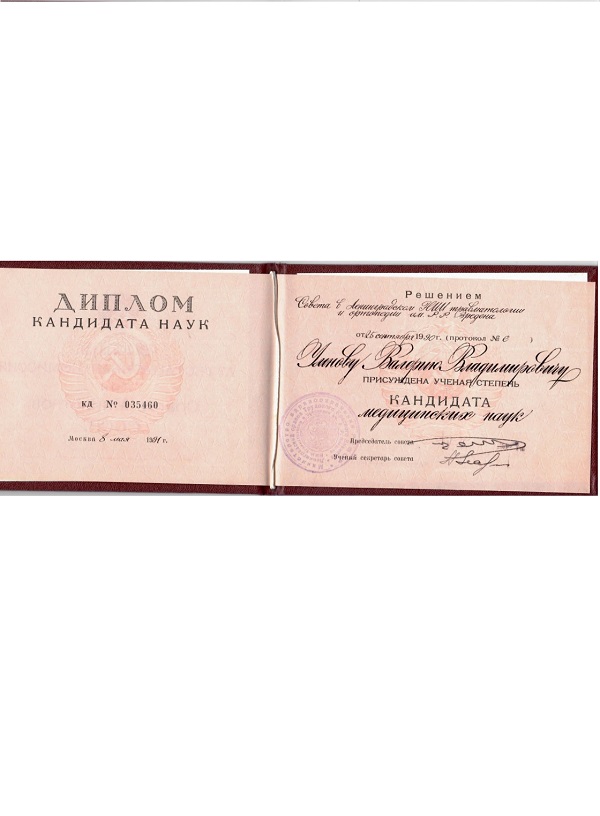 ДИПЛОМ
КАНДИДАТА НАУК
КД № 035460
Москва 8 мая 1991 г.
Решением
Совета в Ленинградском НИИ травматологии
и ортопедии им. Р.Р. Вредена
от 25 сентября 1990 г. (протокол №
Умнову Валерию Владимировичу
ПРИСУЖДЕНА УЧЕНАЯ СТЕПЕНЬ
КАНДИДАТА
медицинских наук
Председатель совета
Ученый секретарь совета